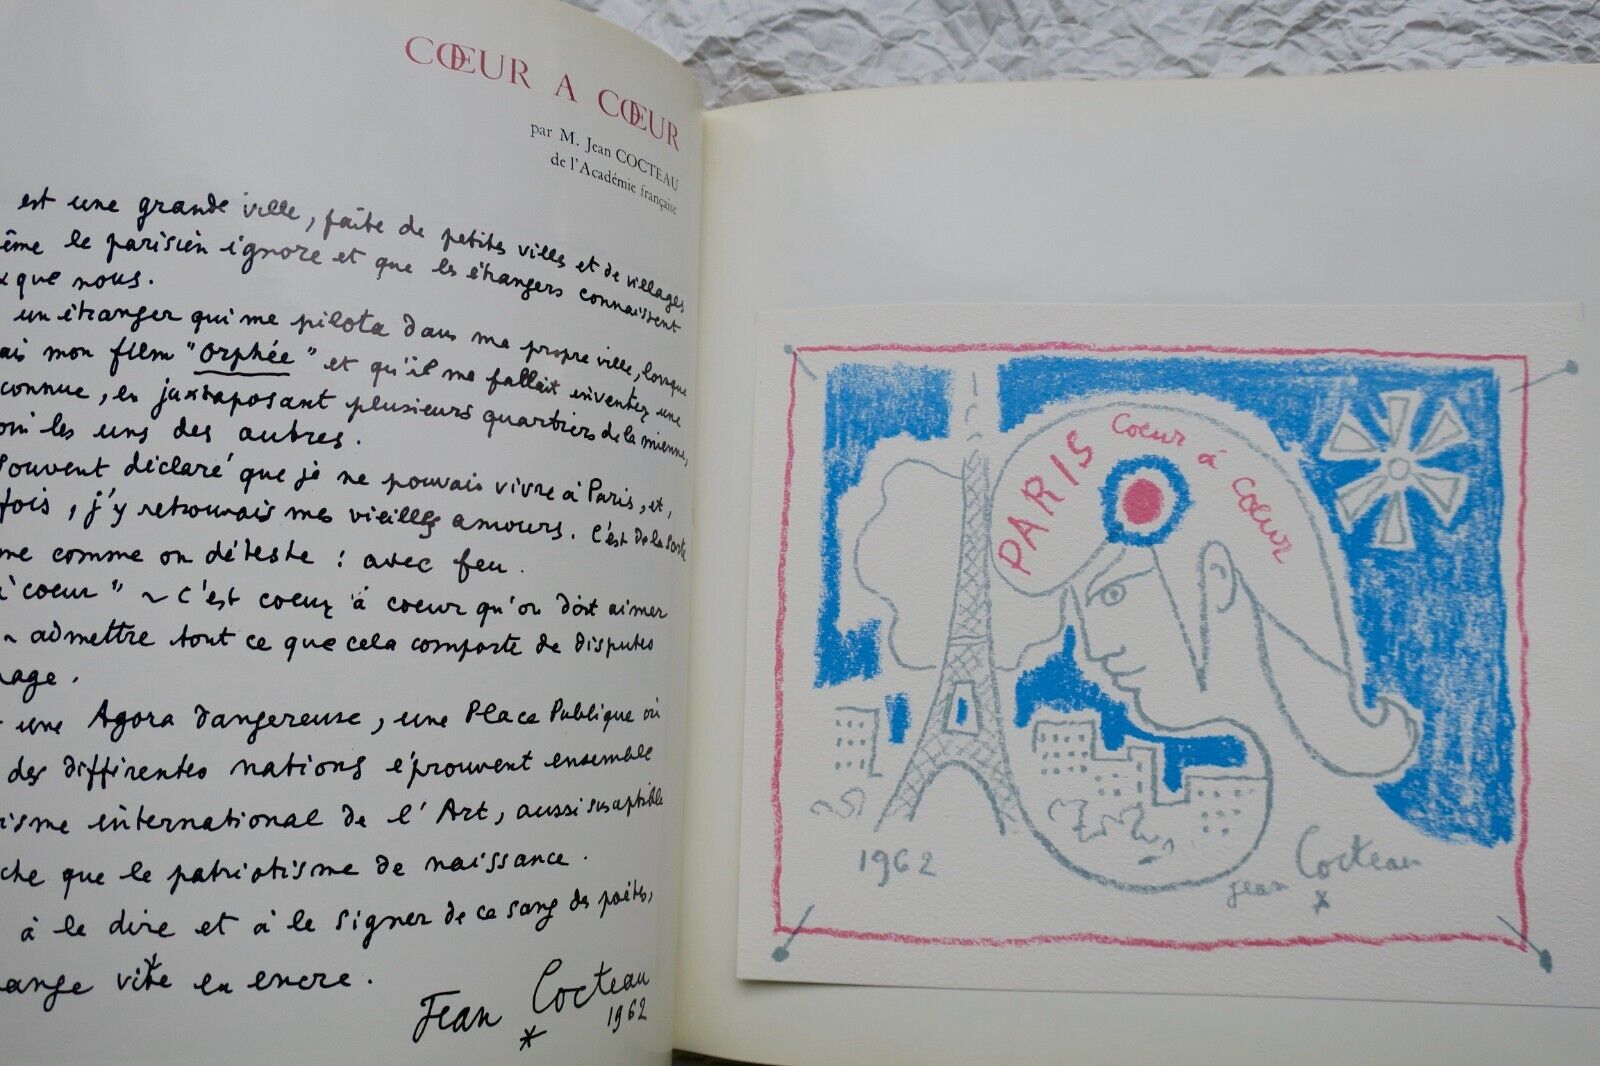 CŒUR A CŒUR
par M. Jean COCTEAU
de l'Académie française
est une grande ville, faite de petites villes et de villages
ême le parisien ignore et que les étrangers connaissent
x que nous.
un étranger qui me pilota dans ma propre ville, lorsque
ais mon film "Orphée" et qu'il me fallait inventer une
connue, en juxtaposant plusieurs quartiers de la mienne,
oin les uns des autres.
souvent déclaré que je ne pouvais vivre à Paris, et,
fois, j'y retrouvais mes vieilles amours. C'est de la sorte
me comme on déteste : avec feu.
à coeur" ~ C'est coeur à coeur qu'on doit aimer
~ admettre tout ce que cela comporte de disputes
nage.
une Agora dangereuse, une Place Publique où
des différentes nations éprouvent ensemble
isme international de l'Art, aussi susceptible
che que le patriotisme de naissance.
à le dire et à le signer de ce sang des poètes,
ange vite en encre.
Jean Cocteau
* 1962
PARIS
Coeur à coeur
1962
Jean Cocteau
*